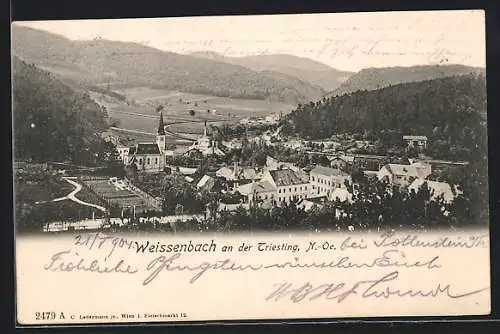 21/5 904 Weissenbach an der Triesting, N.-Oe. bei Pottenstein
Fröhliche Pfingsten wünschen Euch
2479 A C. Ledermann jr., Wien I. Fleischmarkt 12.